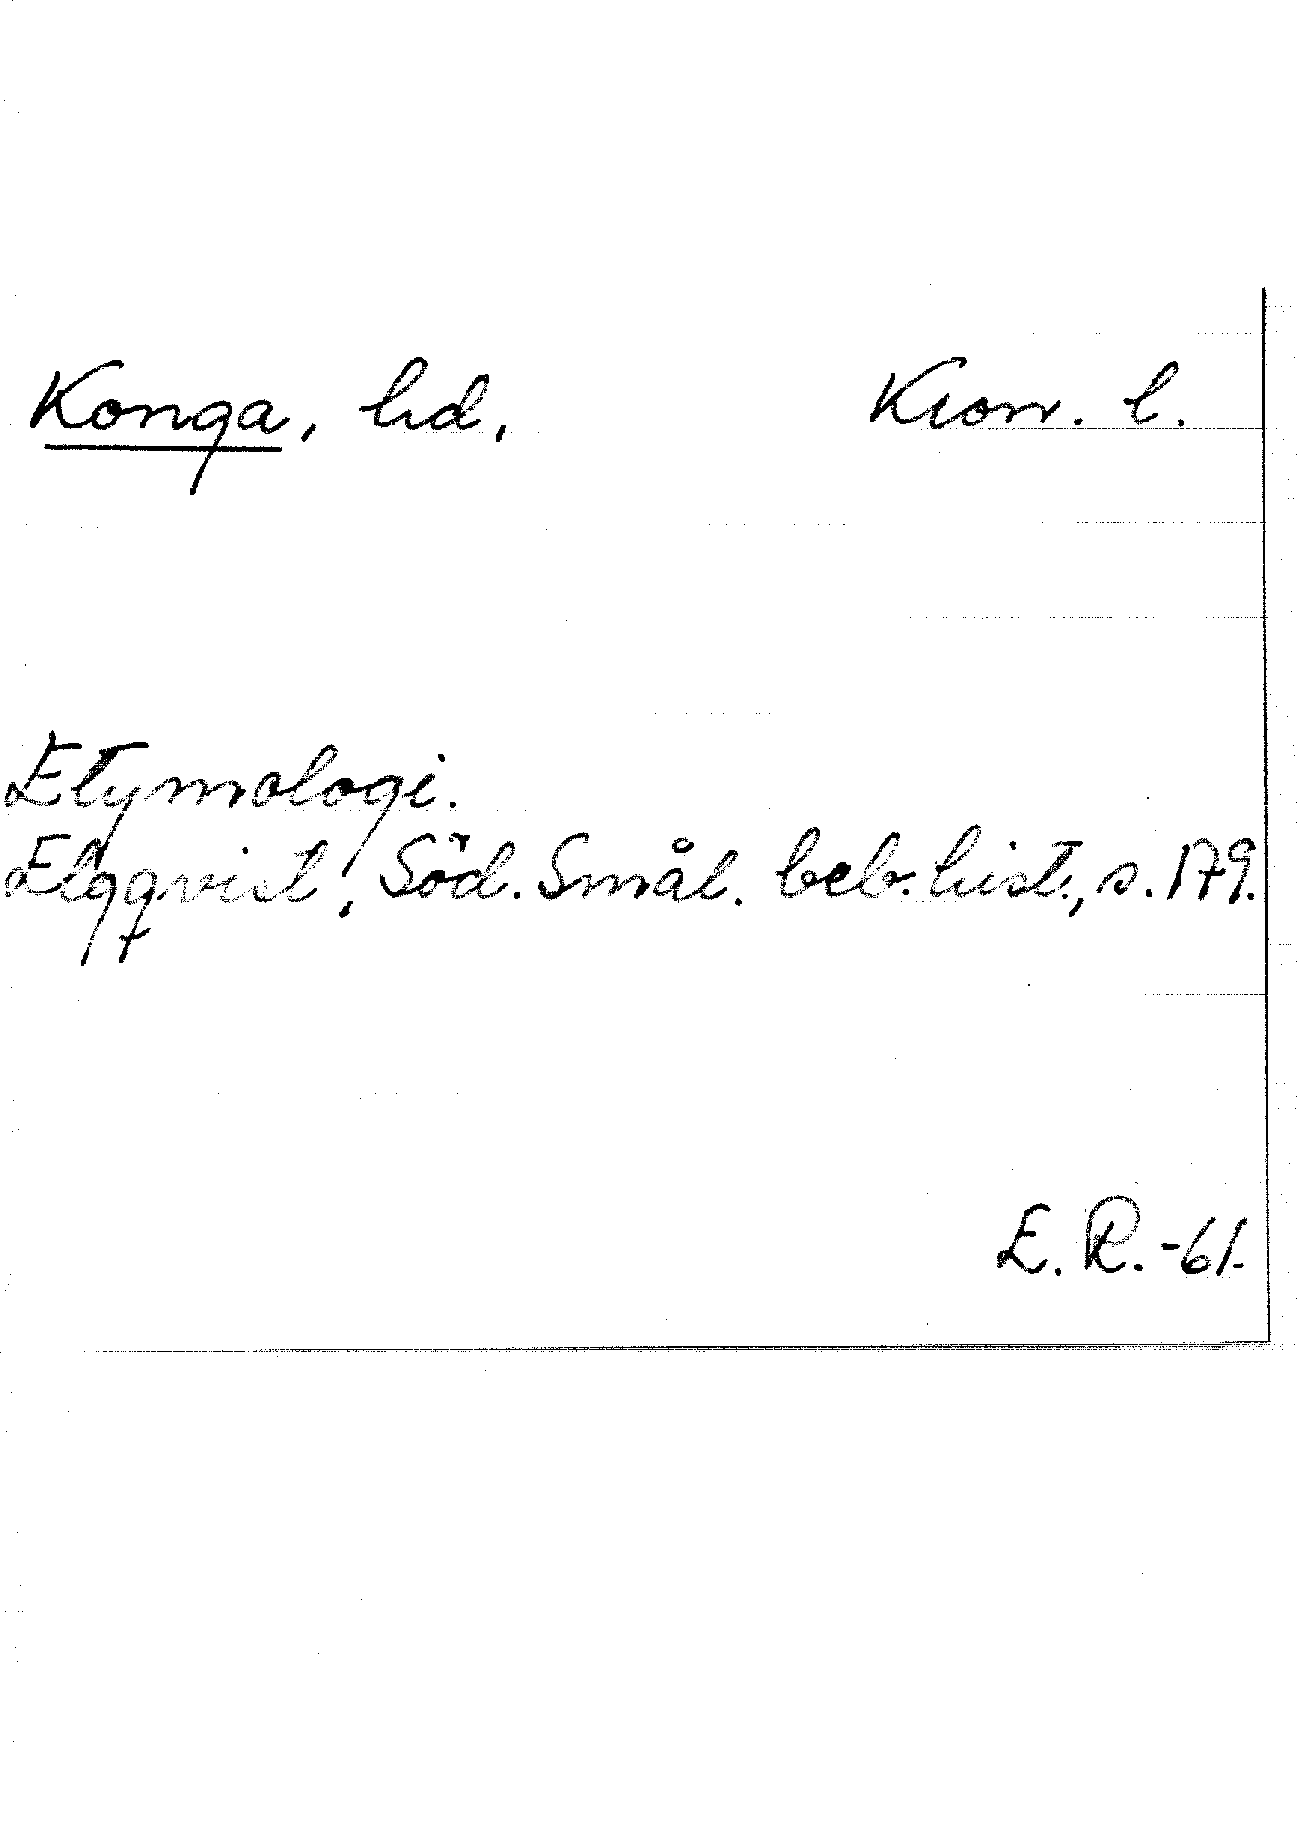 Konga, hd, Kron. l.
Etymologi.
Elgqvist, Söd. Smål. beb. hist., s. 179.
E. R. -61.